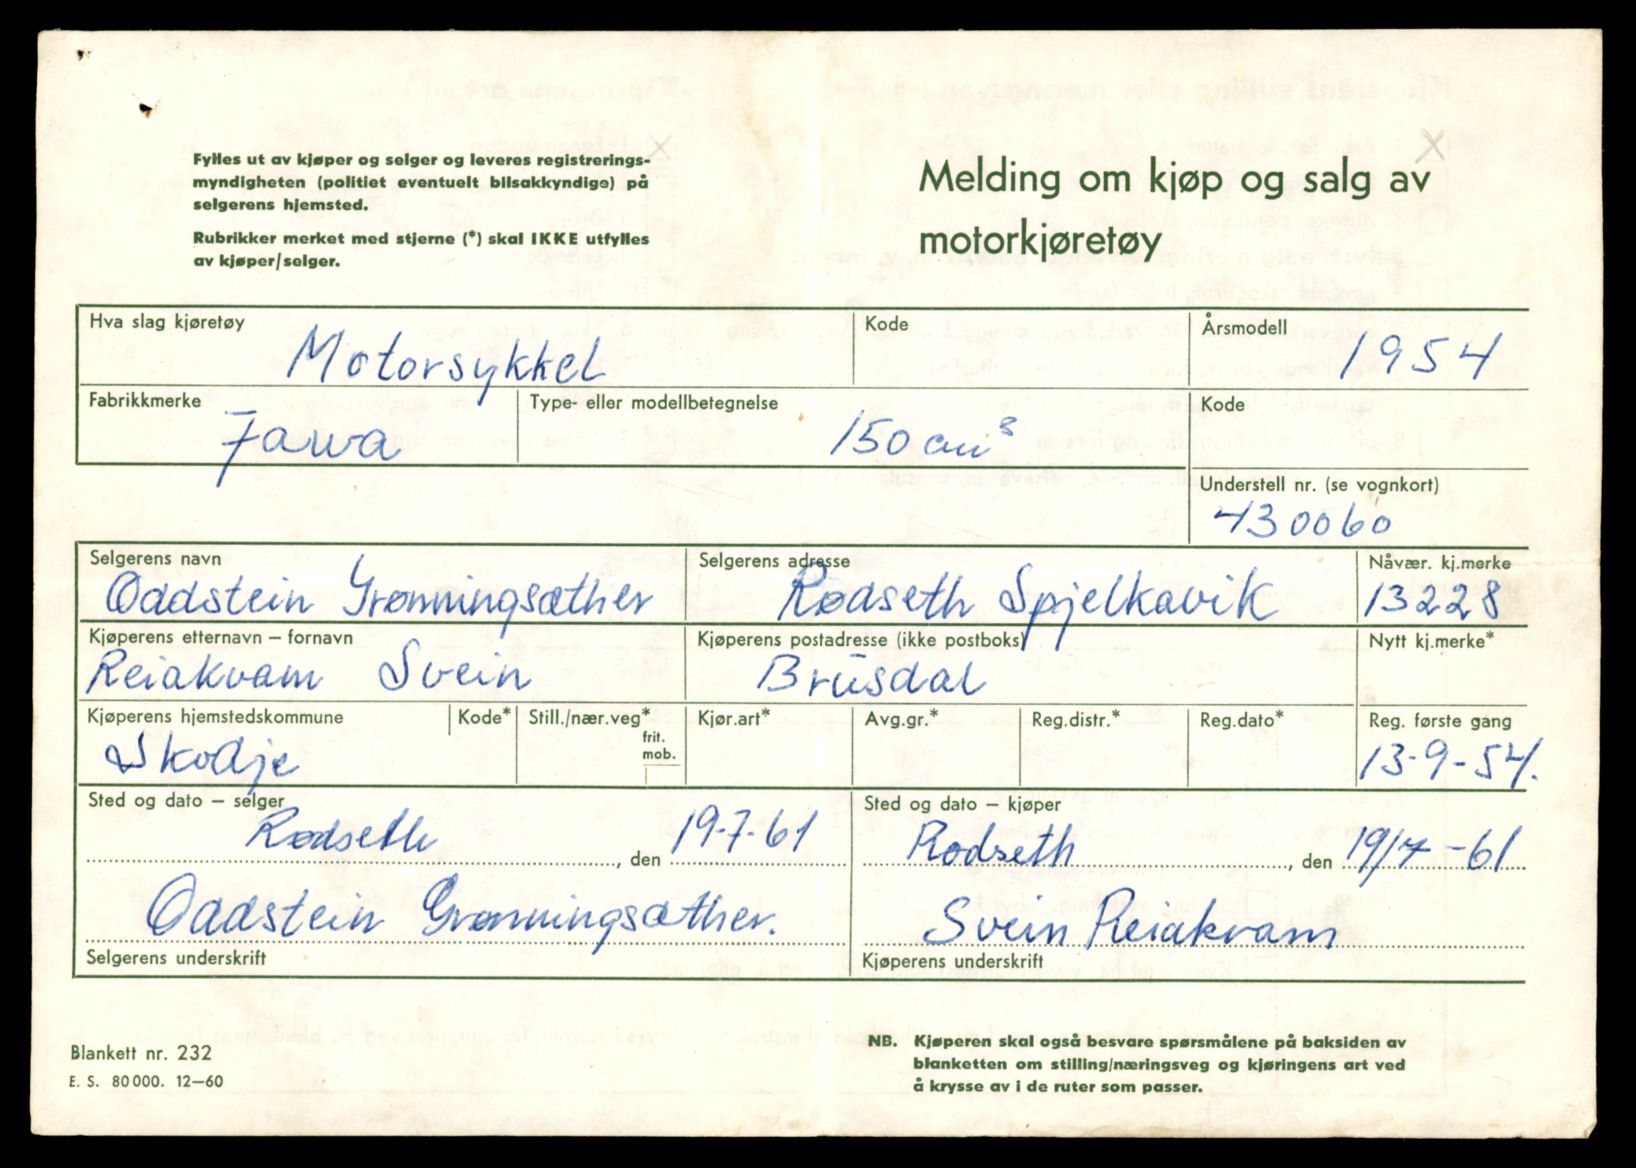 Fylles ut av kjøper og selger og leveres registrerings-
myndigheten (politiet eventuelt bilsakkyndige) på
selgerens hjemsted.
Rubrikker merket med stjerne (*) skal IKKE utfylles
av kjøper/selger.
Melding om kjøp og salg av
motorkjøretøy
Hva slag kjøretøy
Motorsykkel
Kode
Årsmodell
1954
Fabrikkmerke
Jawa
Type- eller modellbetegnelse
150 cm³
Kode
Understell nr. (se vognkort)
430060
Selgerens navn
Oddstein Grønningsæther
Selgerens adresse
Rødseth Spjelkavik
Nåvær. kj.merke
13228
Kjøperens etternavn – fornavn
Reiakvam Svein
Kjøperens postadresse (ikke postboks)
Brusdal
Nytt kj.merke*
Kjøperens hjemstedskommune
Skodje
Kode*
Still./nær.veg*
frit.
mob.
Kjør.art*
Avg.gr.*
Reg.distr.*
Reg.dato*
Reg. første gang
13-9-54.
Sted og dato – selger
Rødseth , den 19-7-61
Sted og dato – kjøper
Rodseth , den 19/7-61
Oddstein Grønningsæther.
Selgerens underskrift
Svein Reiakvam
Kjøperens underskrift
Blankett nr. 232
E. S. 80000. 12–60
NB. Kjøperen skal også besvare spørsmålene på baksiden av
blanketten om stilling/næringsveg og kjøringens art ved
å krysse av i de ruter som passer.